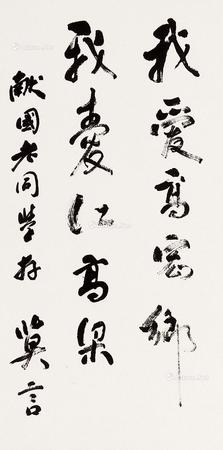 我爱高密乡
我爱红高粱
献国老同学存 莫言